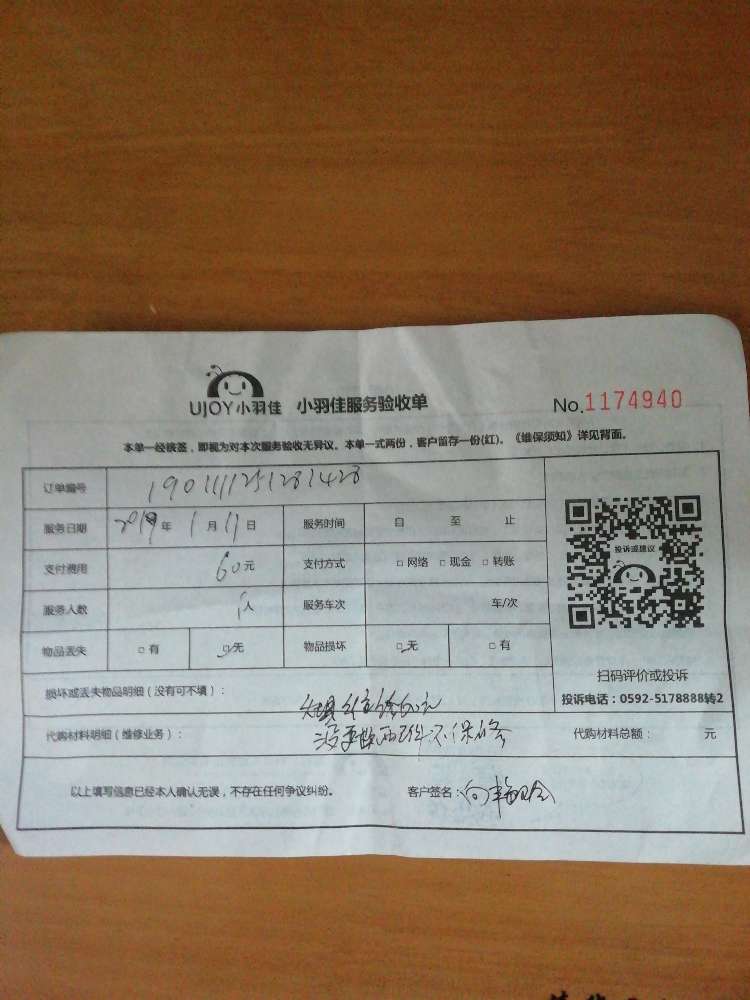 UJOY小羽佳 小羽佳服务验收单 No.1174940
本单一经核签，即视为对本次服务验收无异议。本单一式两份，客户留存一份(红)。《维保须知》详见背面。
订单编号 1901111251281428
服务日期 2019年1月11日 服务时间 自 至 止
支付费用 60元 支付方式 □网络 □现金 □转账
服务人数 1人 服务车次 车/次
物品丢失 □有 □无 物品损坏 □无 □有
投诉或建议
扫码评价或投诉
投诉电话：0592-5178888转2
损坏或丢失物品明细（没有可不填）：
代购材料明细（维修业务）： 没更换配件不保修 代购材料总额： 元
以上填写信息已经本人确认无误，不存在任何争议纠纷。 客户签名：